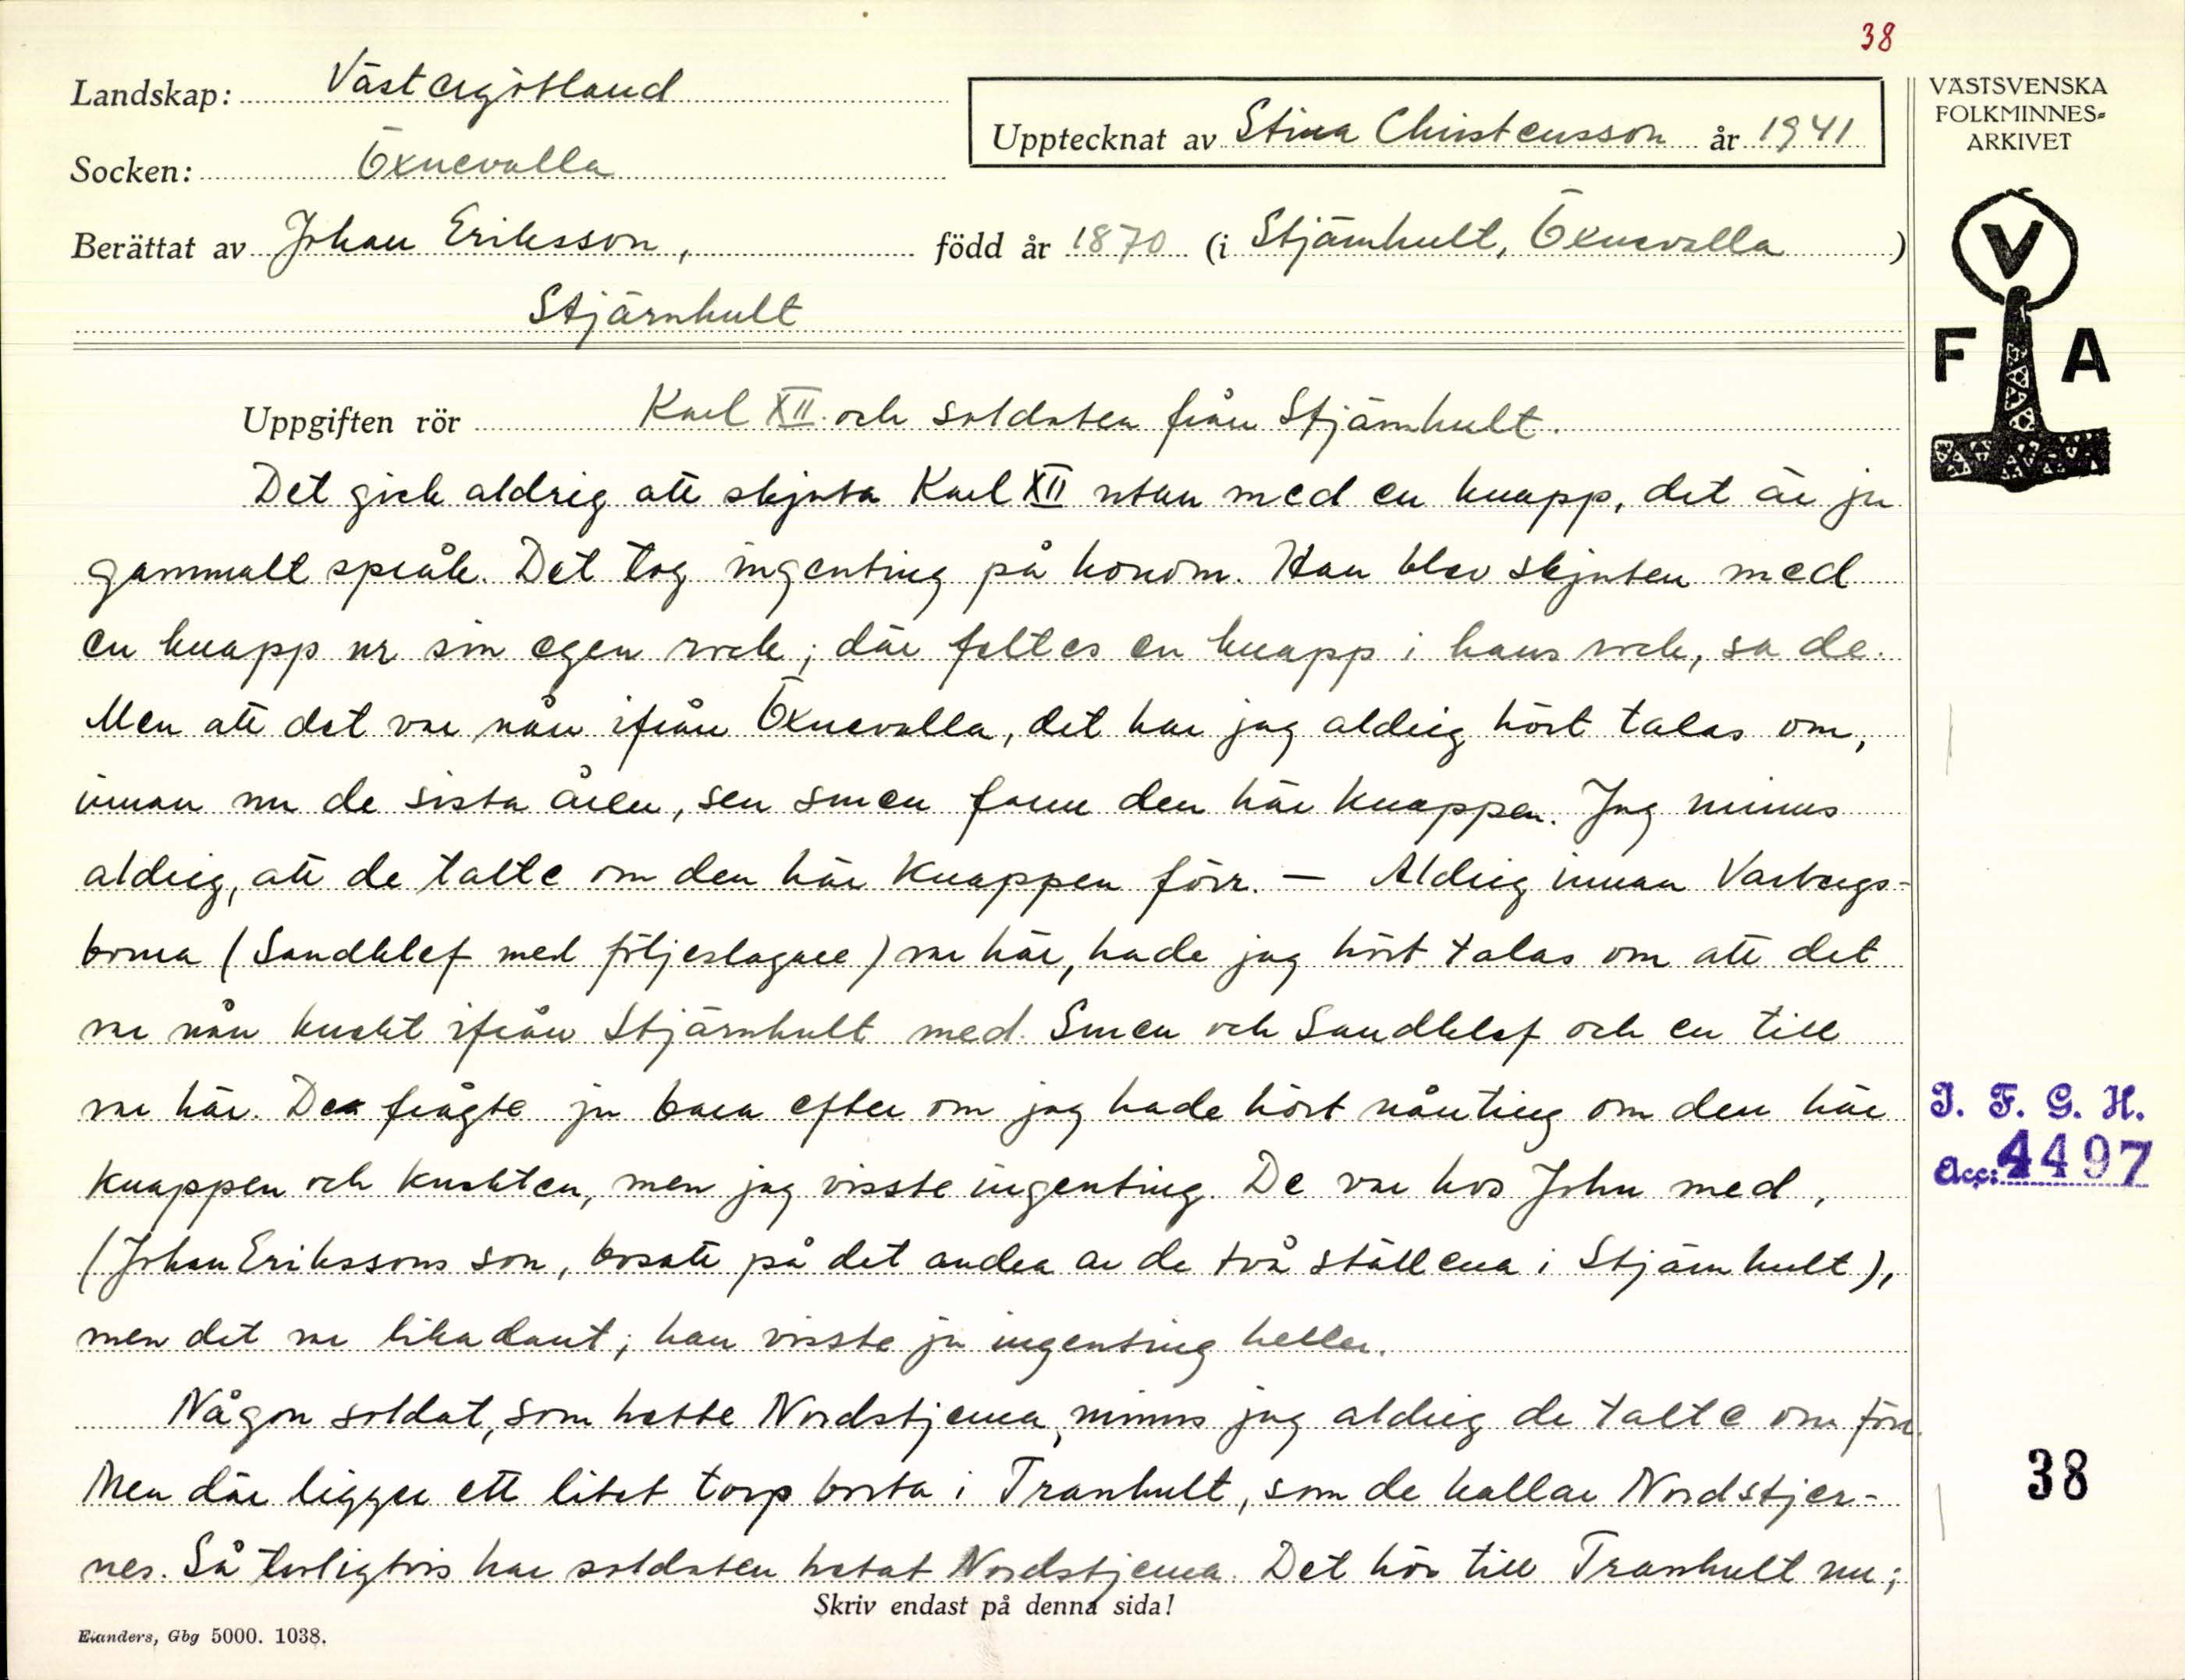 38
Landskap: Västergötland
Socken: Öxnevalla
Upptecknat av Stina Christensson år 1941
Berättat av Johan Eriksson, född år 1870 (i Stjärnhult, Öxnevalla)
Stjärnhult
VÄSTSVENSKA
FOLKMINNES=
ARKIVET
V
F A
Uppgiften rör Karl XII och soldaten från Stjärnhult.
Det gick aldrig att skjuta Karl XII utan med en knapp, det är ju
gammalt språk. Det tog ingenting på honom. Han blev skjuten med
en knapp ur sin egen rock; där feltes en knapp i hans rock, sa de.
Men att det var nån ifrån Öxnevalla, det har jag aldrig hört talas om,
innan nu de sista åren, sen smen fann den här knappen. Jag minns
aldrig, att de talte om den här knappen förr. — Aldrig innan Varbergs-
borna (Sandklef med följeslagare) var här, hade jag hört talas om att det
var nån knekt ifrån Stjärnhult med. Smen och Sandklef och en till
var här. De frågte ju bara efter om jag hade hört nånting om den här
knappen och knekten, men jag visste ingenting. De var hos John med,
(Johan Erikssons son, bosatt på det andra av de två ställena i Stjärnhult),
men det var likadant; han visste ju ingenting heller.
Någon soldat, som hette Nordstjerna, minns jag aldrig de talte om förr.
Men där ligger ett litet torp borta i Tranhult, som de kallar Nordstjer-
nes. Så troligtvis har soldaten hetat Nordstjerna. Det hör till Tranhult nu;
I. F. G. H.
Acc: 4497
38
Skriv endast på denna sida!
Elanders, Gbg 5000. 1038.